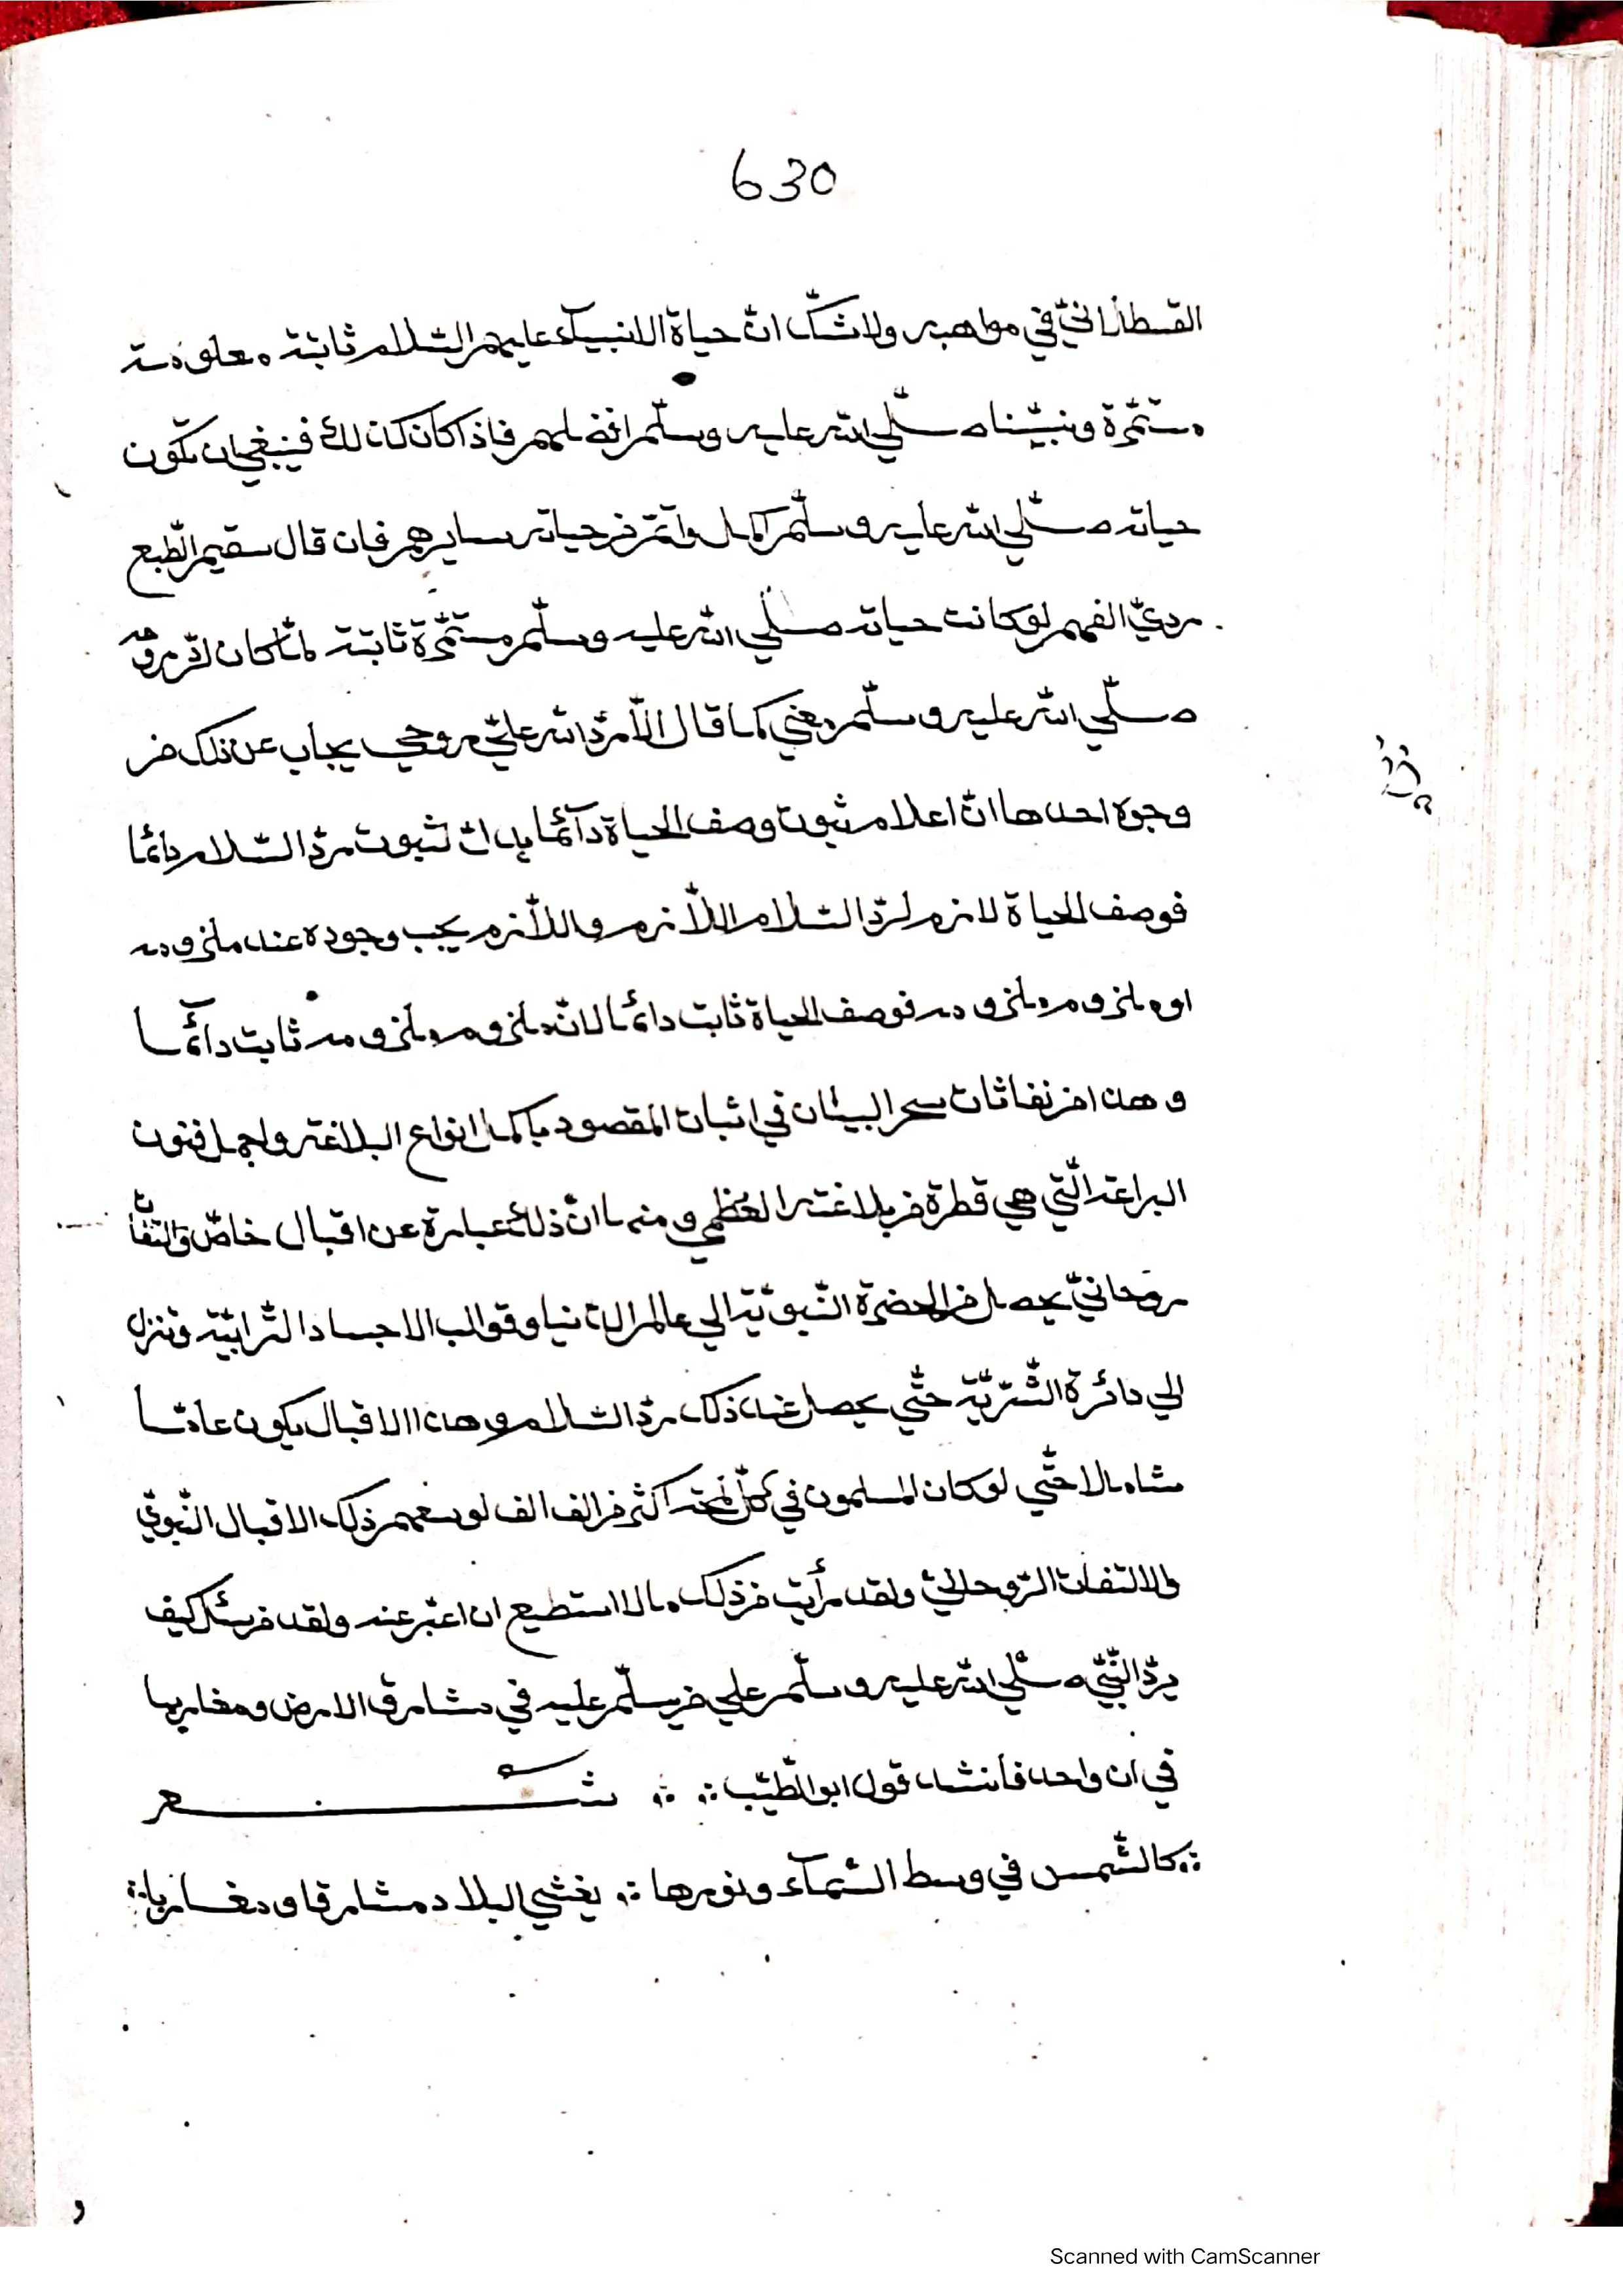 630
القسطلانيّ في مواهبه ولا شكّ انّ حياة الانبيآء عليهم السّلام ثابتة معلومة
مستمّرة ونبيّنا صلّي الله عليه وسلّم افضلهم فاذا كان كذلك فينبغي ان تكون
حياته صلّي الله عليه وسلّم اكمل واتمّ من حياة سايرهم فان قال سقيم الطّبع
رديّ الفهم لو كانت حياته صلّي الله عليه وسلّم مستمّرة ثابتة لما كان لردّ روحه
صلّي الله عليه وسلّم معني كما قال الّا ردّ الله عليّ روحي يجاب عن ذلك من
وجوه احدها انّ اعلام ثبوت وصف الحياة دآئما بدات لثبوت ردّ السّلام دائما
فوصف الحياة لازم لردّ السّلام اللّازم واللّازم يجب وجوده عند ملزومه
او ملزوم ملزومه فوصف الحياة ثابت دائما لانّ ملزوم ملزومه ثابت دآئما
وهذا من نفاثات سحر البيان في اثبات المقصود باكمل انواع البلاغة واجمل فنون
البراعة الّتي هي قطرة من بلاغته العظمي ومنها انّ ذلك عبارة عن اقبال خاصّ والتفات
روحانيّ يحصل من الحضرة النّبويّة الي عالم الدنيا وقوالب الاجساد التّرابيّة وتنزل
الي دائرة البشريّة حتّي يحصل عند ذلك ردّ السّلام وهذا الاقبال يكون عامّا
شاملا حتّي لو كان المسلمون في كلّ لمحة اكثر من الف الف لوسعهم ذلك الاقبال النّبويّ
والالتفات الرّوحانيّ ولقد رأيت من ذلك ما لا استطيع ان اعبّر عنه ولقد من سئل كيف
يردّ النّبيّ صلّي الله عليه وسلّم علي من يسلّم عليه في مشارق الارض ومغاربها
في ان واحد فأنشد قول ابو الطّيّب ∴ ∴ شعر
∴ كالشّمس في وسط السّمآء ونورها ∴ يغشي البلاد مشارقا ومغاربا ∴
Scanned with CamScanner